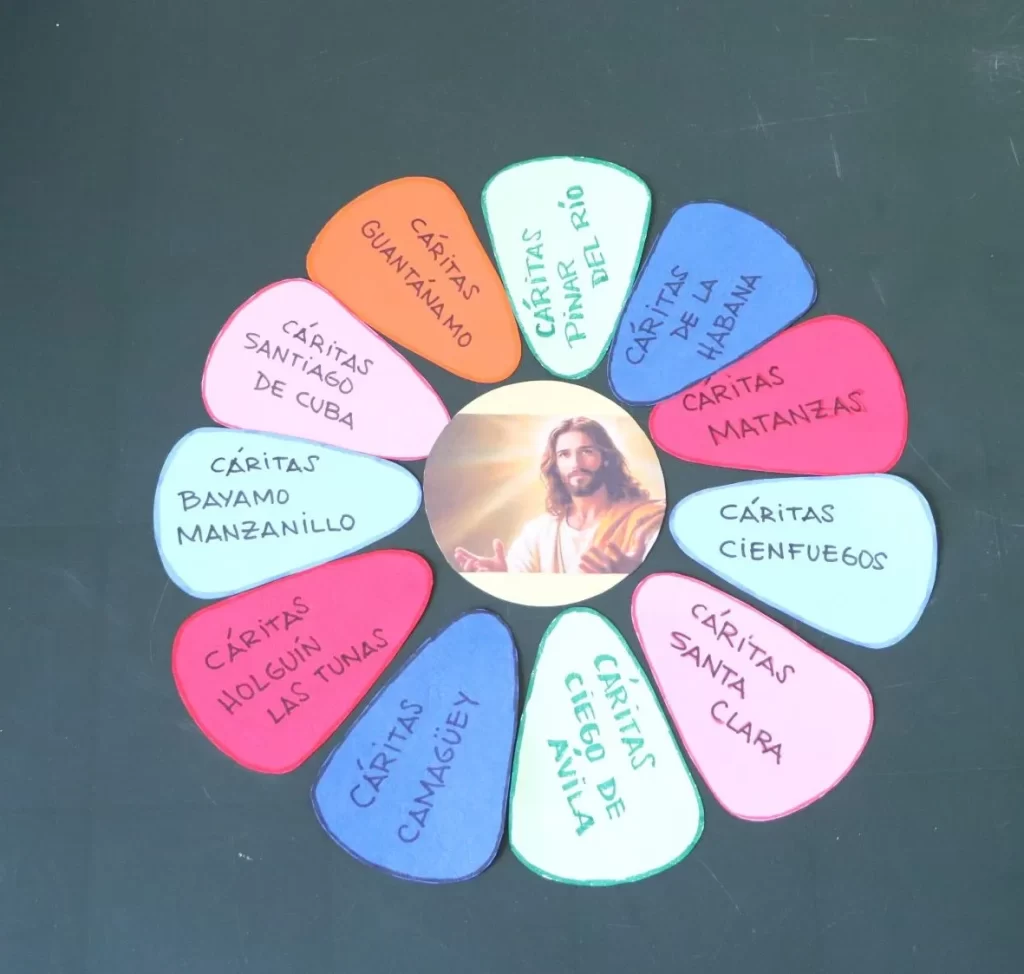 CÁRITAS
PINAR
DEL RÍO
CÁRITAS
DE LA
HABANA
CÁRITAS
MATANZAS
CÁRITAS
CIENFUEGOS
CÁRITAS
SANTA
CLARA
CÁRITAS
CIEGO DE
ÁVILA
CÁRITAS
CAMAGÜEY
CÁRITAS
HOLGUÍN
LAS TUNAS
CÁRITAS
BAYAMO
MANZANILLO
CÁRITAS
SANTIAGO
DE CUBA
CÁRITAS
GUANTÁNAMO